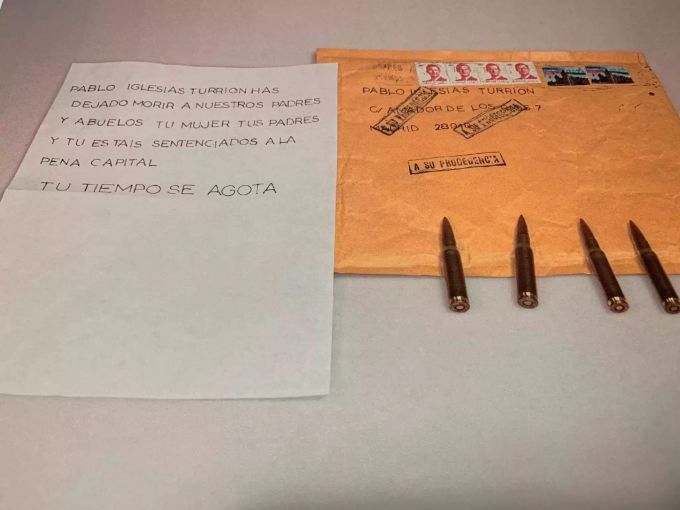 PABLO IGLESIAS TURRION HAS
DEJADO MORIR A NUESTROS PADRES
Y ABUELOS TU MUJER TUS PADRES
Y TU ESTAIS SENTENCIADOS A LA
PENA CAPITAL
TU TIEMPO SE AGOTA
PABLO IGLESIAS TURRION
C/ DE LOS 7
MADRID
A SU PROCEDENCIA
A SU PROCEDENCIA